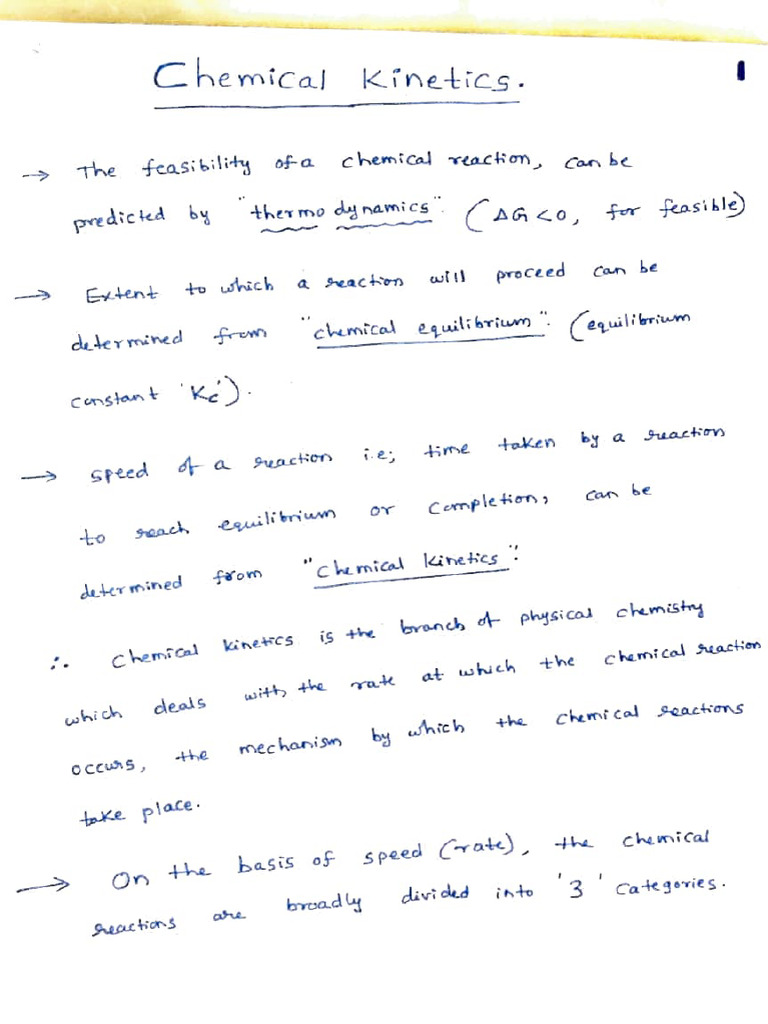 Chemical Kinetics.
1
→ The feasibility of a chemical reaction, can be
predicted by "thermodynamics". (ΔG<0, for feasible)
→ Extent to which a reaction will proceed can be
determined from "chemical equilibrium". (equilibrium
constant 'Kc').
→ Speed of a reaction i.e; time taken by a reaction
to reach equilibrium or completion, can be
determined from "Chemical Kinetics".
∴ Chemical kinetics is the branch of physical chemistry
which deals with the rate at which the chemical reaction
occurs, the mechanism by which the chemical reactions
take place.
→ On the basis of speed (rate), the chemical
reactions are broadly divided into '3' categories.